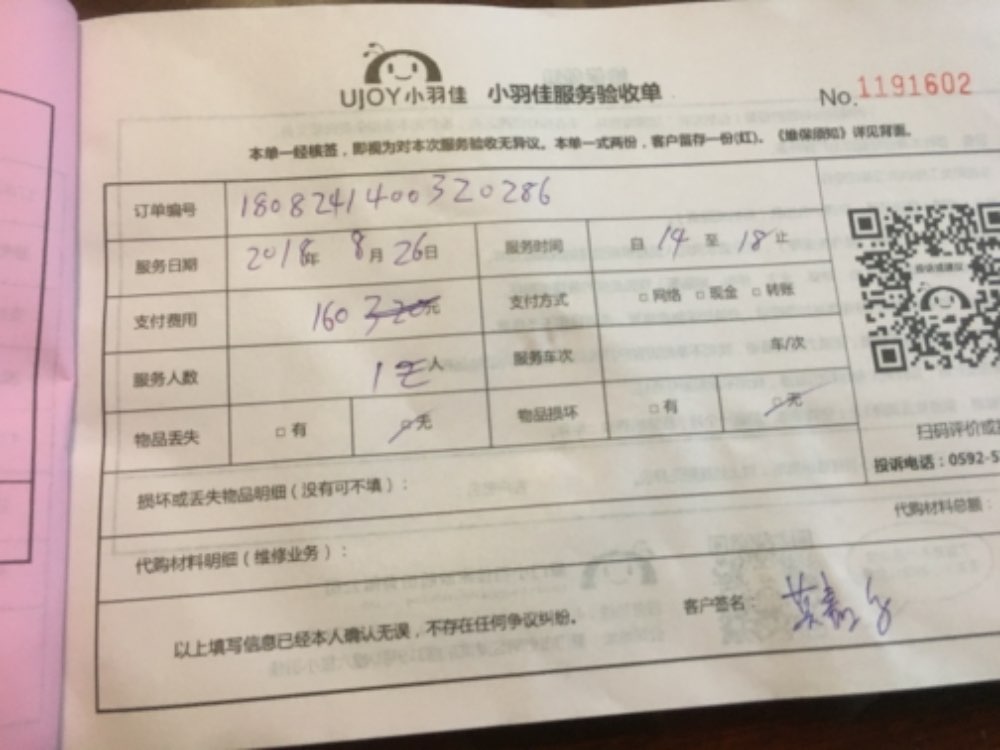 UJOY小羽佳 小羽佳服务验收单 No.1191602
本单一经核签，即视为对本次服务验收无异议。本单一式两份，客户留存一份(红)。《维保须知》详见背面。
订单编号 180824140032 0286
服务日期 2018年 8月 26日 服务时间 自 14 至 18 止
支付费用 160 320元 支付方式 □网络 □现金 □转账
服务人数 1 人 服务车次 车/次
物品丢失 □有 □无 物品损坏 □有 □无
扫码评价或
投诉电话：0592-5
损坏或丢失物品明细（没有可不填）：
代购材料明细（维修业务）： 代购材料总额：
以上填写信息已经本人确认无误，不存在任何争议纠纷。 客户签名：